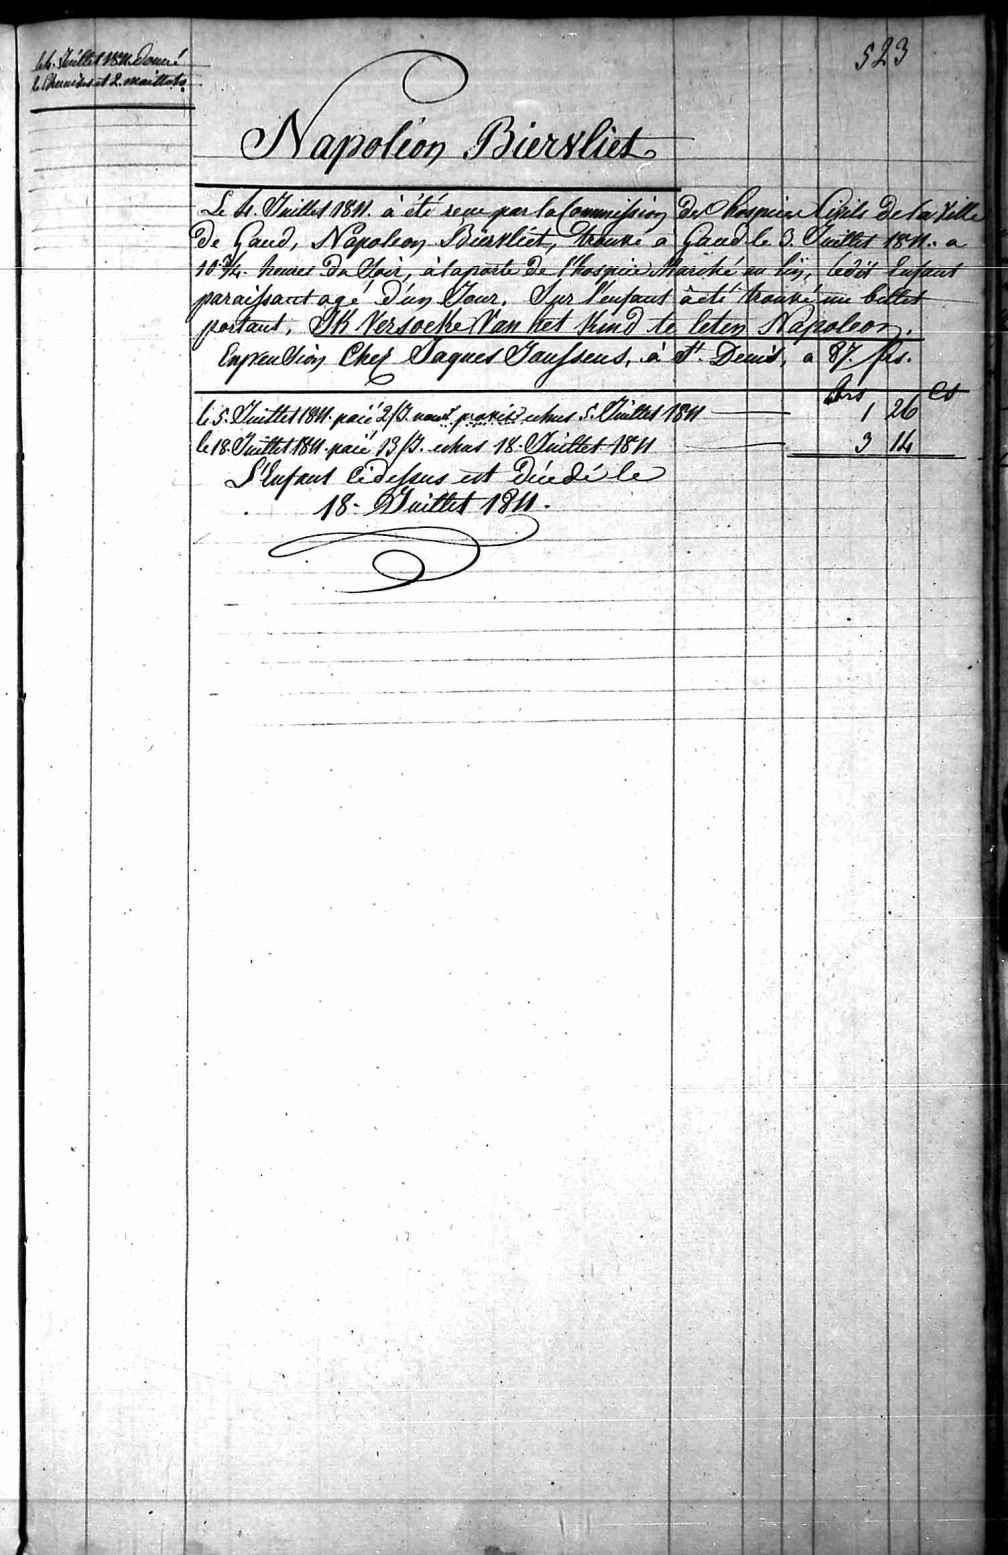 523
le 4. Juillet 1811. Donné
2. maillots
Napoléon Biervliet
Le 4. Juillet 1811. à été reçu par la Commission des hospices Civils de la Ville
de Gand, Napoleon Biervliet, trouvé a Gand le 3. Juillet 1811. a
10 3/4. heures du Soir, à la porte de l'hospice Marché au lin, ledit Enfant
paraissant agé d'un Jour. Sur l'enfant à été trouvé un billet
portant, IK Versoeke Van het Kind te leten Napoleon.
En pension Chez Jaques Janssens, à St. Denis, a 87. frs.
frs Cs
le 5. Juillet 1811. paié 2/3. echus 5. Juillet 1811 1 26
le 18. Juillet 1811. paié 13/3. echus 18. Juillet 1811 3 14
L'Enfant Cidessus est Décédé le
18. Juillet 1811.